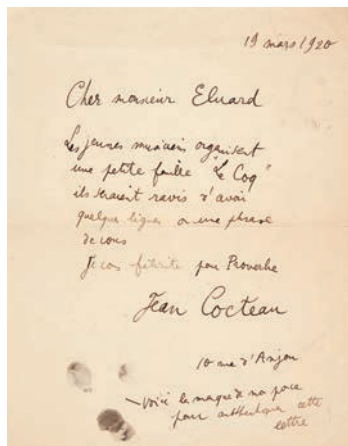 19 mars 1920
Cher monsieur Eluard
Les jeunes musiciens organisent
une petite feuille "Le Coq"
ils seraient ravis d'avoir
quelques lignes ou une phrase
de vous
Je vous félicite pour Proverbe
Jean Cocteau
10 rue d'Anjou
— Voici la marque de mon pouce
pour authentiquer cette
lettre